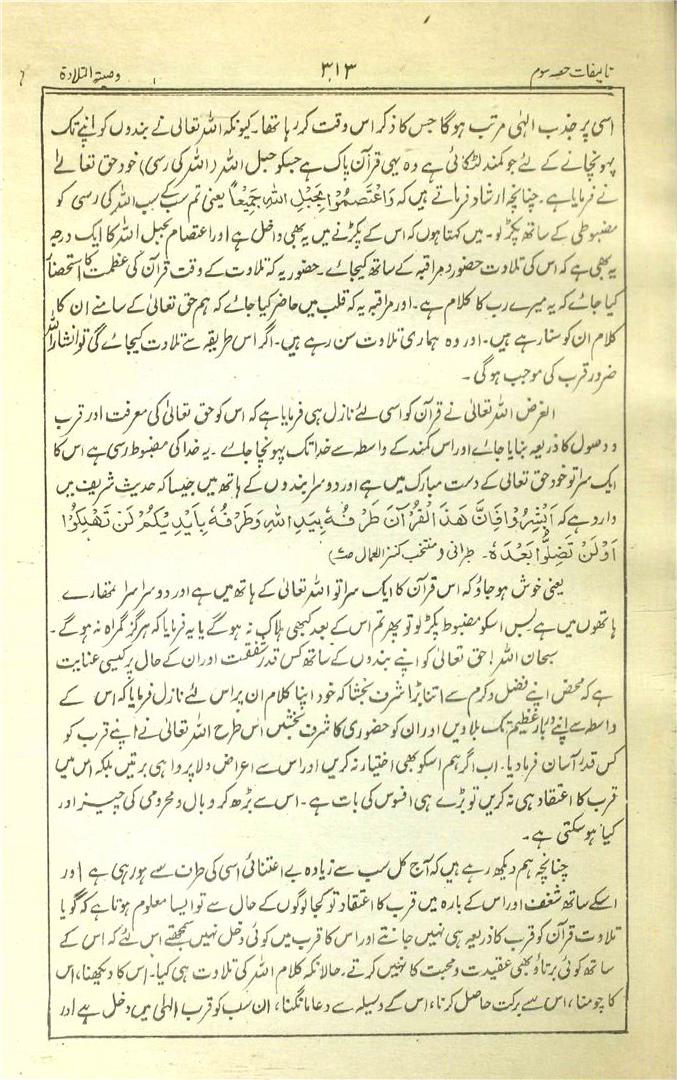 تالیفات حصہ سوم ۳۱۳ وصیۃ التلاوۃ
اسی پر جذب الٰہی مرتب ہوگا جس کا ذکر اس وقت کر رہا تھا۔ کیونکہ اللہ تعالیٰ نے بندوں کو اپنے تک
پہونچانے کے لئے جو کمند لٹکائی ہے وہ یہی قرآن پاک ہے جسکو حبل اللہ (اللہ کی رسی) خود حق تعالےٰ
نے فرمایا ہے۔ چنانچہ ارشاد فرماتے ہیں کہ وَاعْتَصِمُوْا بِحَبْلِ اللہِ جَمِیْعاً یعنی تم سب کے سب اللہ کی رسی کو
مضبوطی کے ساتھ پکڑ لو۔ میں کہتا ہوں کہ اس کے پکڑنے میں یہ بھی داخل ہے اور اعتصام بحبل اللہ کا ایک درجہ
یہ بھی ہے کہ اس کی تلاوت حضور و مراقبہ کے ساتھ کیجائے۔ حضور یہ کہ تلاوت کے وقت قرآن کی عظمت کا استحضار
کیا جائے کہ یہ میرے رب کا کلام ہے۔ اور مراقبہ یہ کہ قلب میں حاضر کیا جائے کہ ہم حق تعالیٰ کے سامنے ان کا
کلام ان کو سنا رہے ہیں۔ اور وہ ہماری تلاوت سن رہے ہیں۔ اگر اس طریقہ سے تلاوت کیجائے گی تو انشاء اللہ
ضرور قرب کی موجب ہوگی۔
الغرض اللہ تعالیٰ نے قرآن کو اسی لئے نازل ہی فرمایا ہے کہ اس کو حق تعالیٰ کی معرفت اور قرب
و وصول کا ذریعہ بنایا جائے اور اس کمند کے واسطہ سے خدا تک پہونچا جائے۔ یہ خدا کی مضبوط رسی ہے اس کا
ایک سرا تو خود حق تعالیٰ کے دست مبارک میں ہے اور دوسرا بندوں کے ہاتھ میں جیسا کہ حدیث شریف میں
وارد ہے کہ اَبْشِرُوْا فَاِنَّ ھٰذَا الْقُرْآنَ طَرْفُہٗ بِیَدِ اللہِ وَطَرْفُہٗ بِاَیْدِیْکُمْ لَنْ تَھْلِکُوْا
اَوْ لَنْ تَضِلُّوا بَعْدَہٗ۔ طبرانی و منتخب کنز العمال
یعنی خوش ہو جاؤ کہ اس قرآن کا ایک سرا تو اللہ تعالیٰ کے ہاتھ میں ہے اور دوسرا سرا تمھارے
ہاتھوں میں ہے پس اسکو مضبوط پکڑ لو تو پھر تم اس کے بعد کبھی ہلاک نہ ہو گے یا یہ فرمایا کہ ہرگز گمراہ نہ ہو گے۔
سبحان اللہ! حق تعالیٰ کو اپنے بندوں کے ساتھ کس قدر شفقت اور ان کے حال پر کیسی عنایت
ہے کہ محض اپنے فضل و کرم سے اتنا بڑا شرف بخشا کہ خود اپنا کلام ان پر اس لئے نازل فرمایا کہ اس کے
واسطہ سے اپنے دربار عظیم تک بلا دیں اور ان کو حضوری کا شرف بخشیں اس طرح اللہ تعالیٰ نے اپنے قرب کو
کس قدر آسان فرما دیا۔ اب اگر ہم اسکو بھی اختیار نہ کریں اور اس سے اعراض و لاپرواہی برتیں بلکہ اس میں
قرب کا اعتقاد ہی نہ کریں تو بڑے ہی افسوس کی بات ہے۔ اس سے بڑھ کر وبال و محرومی کی چیز اور
کیا ہوسکتی ہے۔
چنانچہ ہم دیکھ رہے ہیں کہ آج کل سب سے زیادہ بے اعتنائی اسی کی طرف سے ہو رہی ہے اور
اسکے ساتھ شغف اور اس کے بارہ میں قرب کا اعتقاد تو کجا لوگوں کے حال سے تو ایسا معلوم ہوتا ہے کہ گویا
تلاوت قرآن کو قرب کا ذریعہ ہی نہیں جانتے اور اس کا قرب میں کوئی دخل نہیں سمجھتے اس لئے کہ اس کے
ساتھ کوئی برتاؤ بھی عقیدت و محبت کا نہیں کرتے۔ حالانکہ کلام اللہ کی تلاوت ہی کیا۔ اس کا دیکھنا، اس
کا چومنا، اس سے برکت حاصل کرنا، اس کے وسیلہ سے دعا مانگنا، ان سب کو قرب الٰہی میں دخل ہے اور